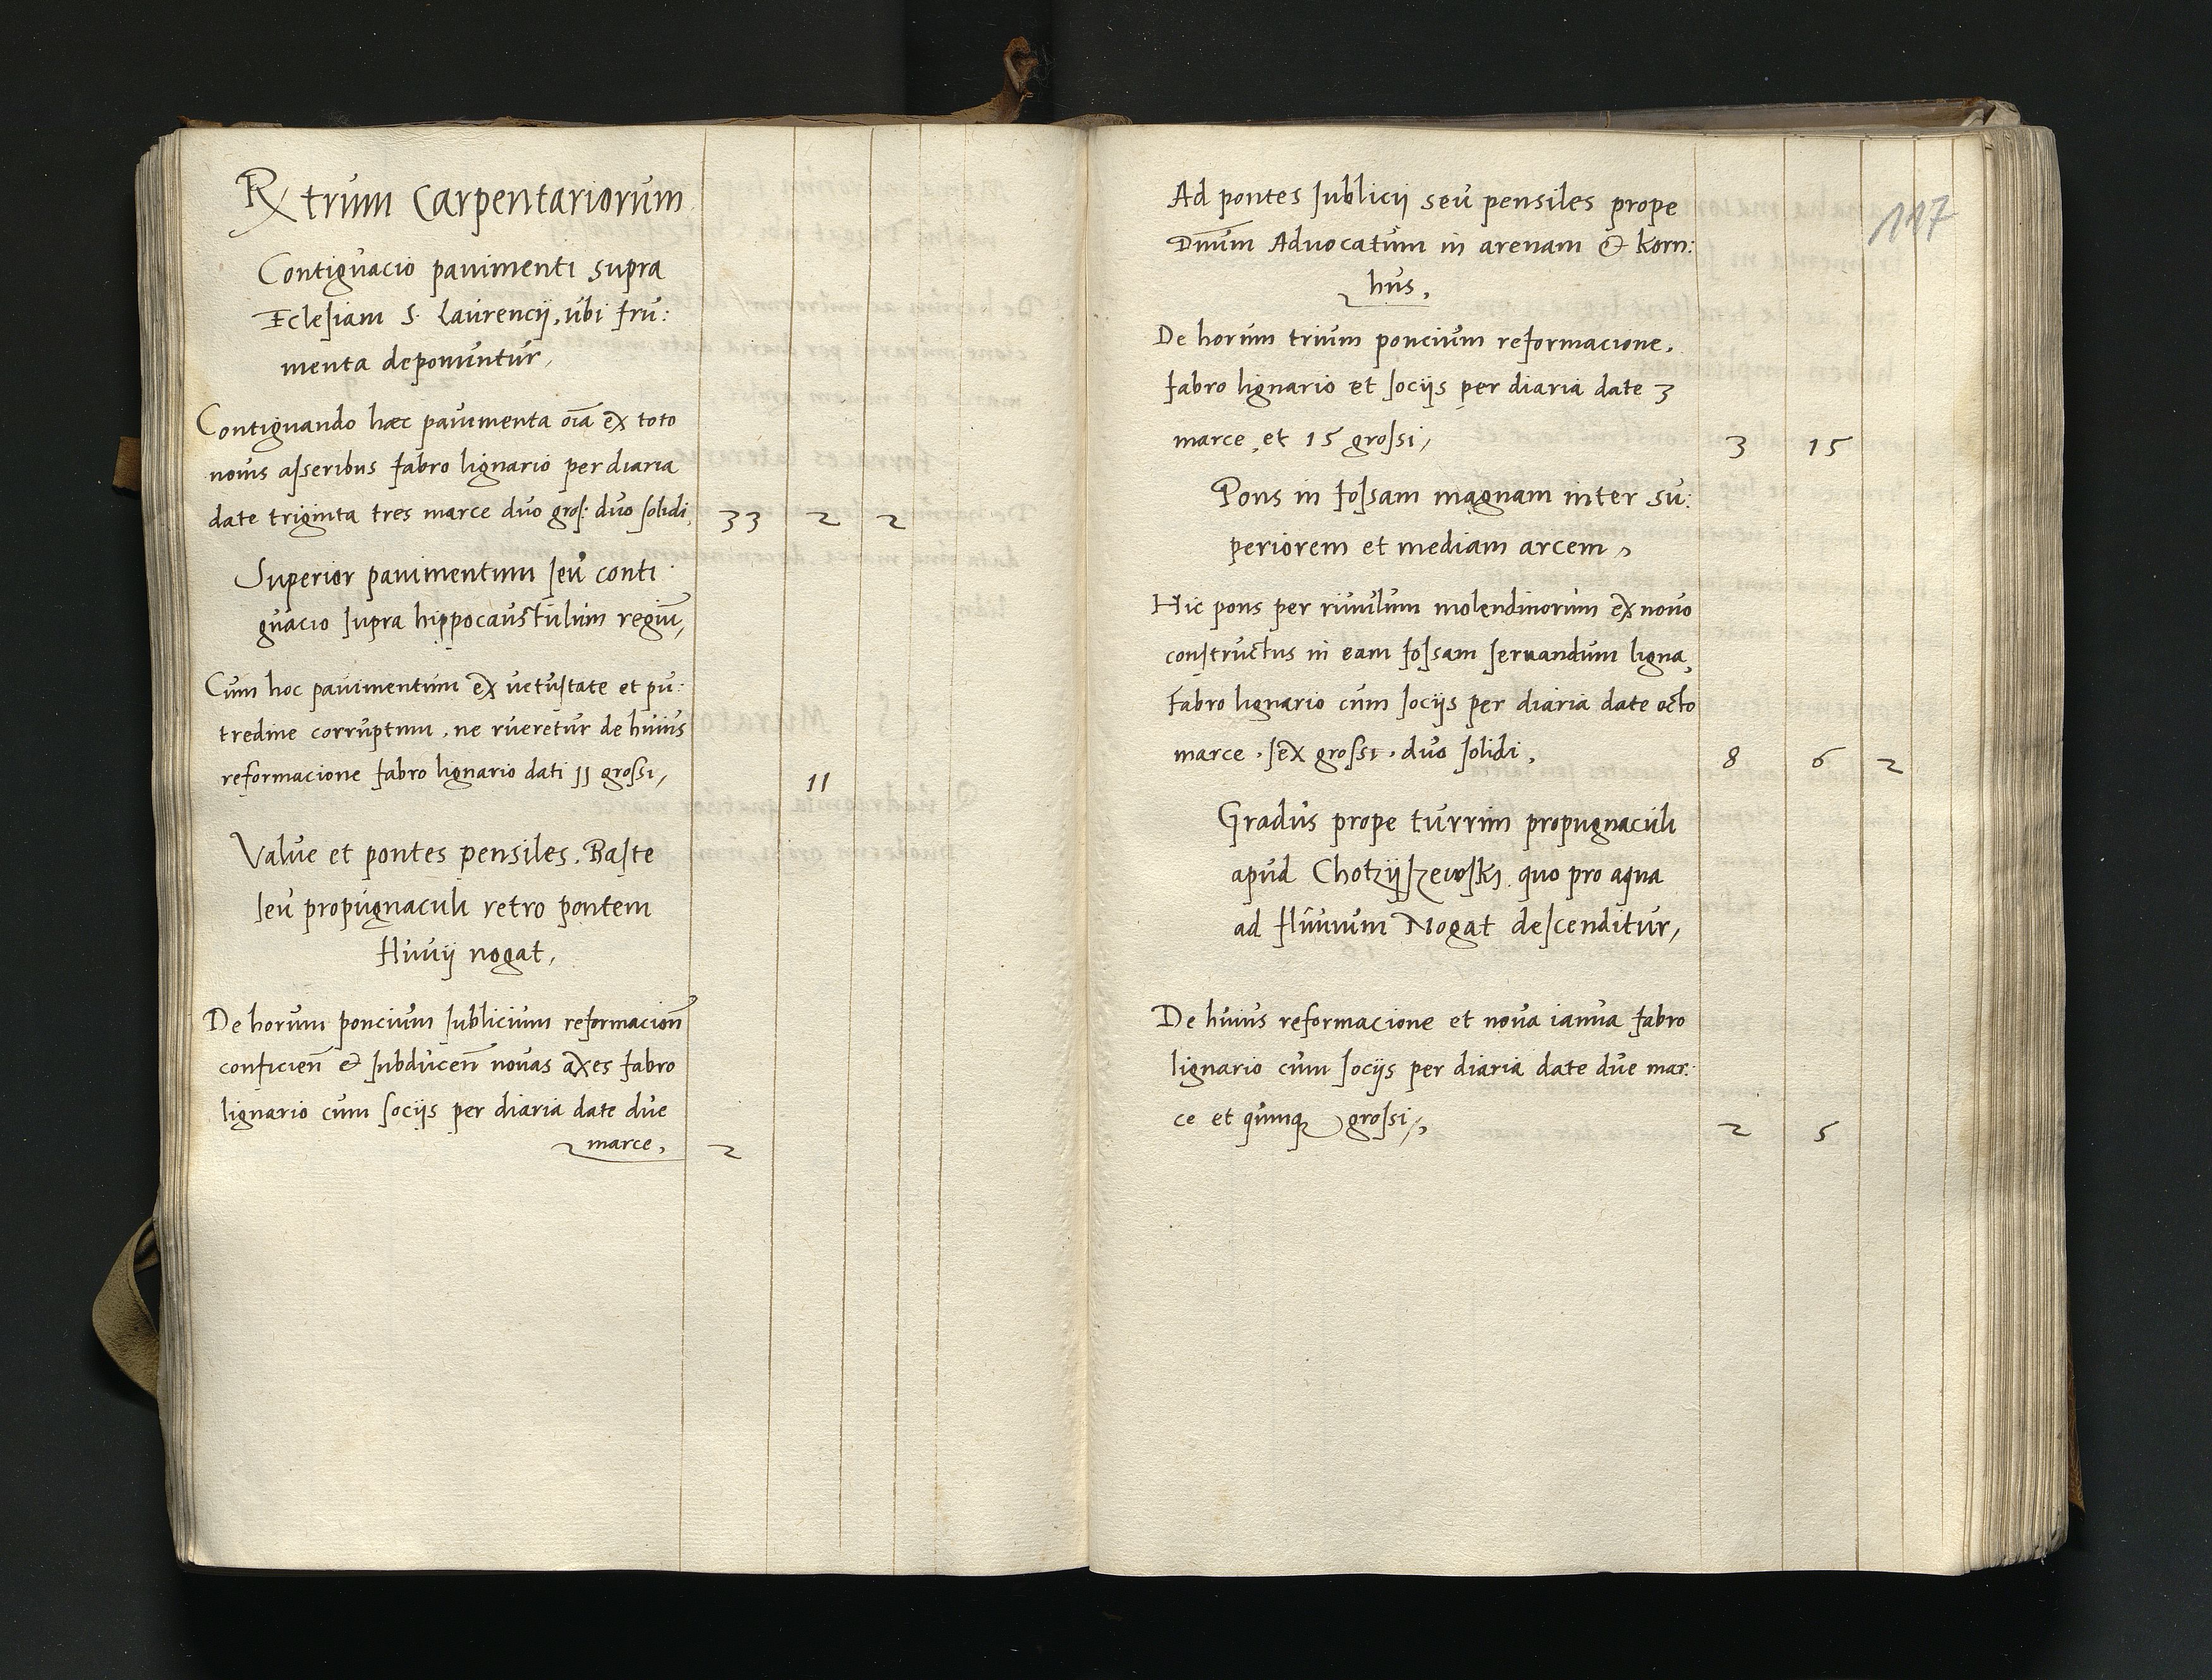 Rx trum Carpentariorum
Contignacio pauimenti supra
Eclesiam S. Laurencij, ubi fru:
menta deponuntur,
Contignando hæc pauimenta oīa ex toto
nouis asseribus fabro lignario per diaria
date triginta tres marce duo gros: duo solidi, 33 2 2
Superior pauimentum seu conti
gnacio supra hippocaustulum regiū,
Cum hoc pauimentum ex uetustate et pu:
tredine corruptum, ne rueretur de huius
reformacione fabro lignario dati 11 grossi, 11
Value et pontes pensiles. Baste
seu propugnaculi retro pontem
fluuij nogat,
De horum poncium sublicium reformacioñ
conficieñ & subduceñ nouas axes fabro
lignario cum socijs per diaria date due
marce, 2
117
Ad pontes sublicij seu pensiles prope
Dnūm Aduocatum in arenam & korn:
hus,
De horum trium poncium reformacione,
fabro lignario et socijs per diaria date 3
marce, et 15 grossi, 3 15
Pons in fossam magnam inter su:
periorem et mediam arcem,
Hic pons per riuulum molendinorum ex nouo
constructus in eam fossam seruandum ligna,
fabro lignario cum socijs per diaria date octo
marce. sex grossi. duo solidi, 8 6 2
Gradus prope turrim propugnaculi
apud Chotzijszewski, quo pro aqua
ad fluuium Nogat descenditur,
De huius reformacione et noua ianua fabro
lignario cum socijs per diaria date due mar:
ce et quinqȝ grossi, 2 5